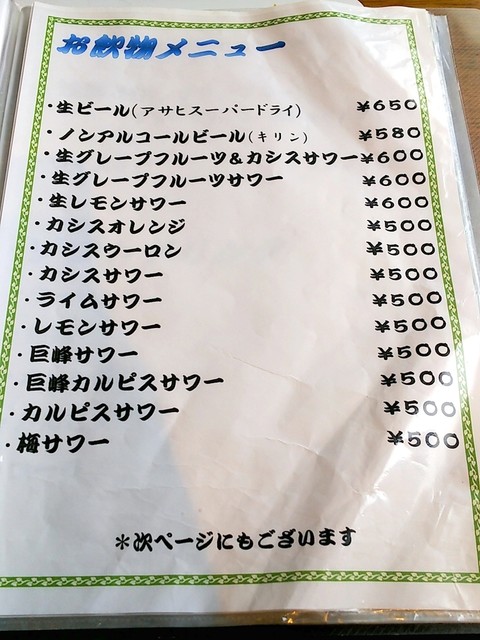 お飲物メニュー
・生ビール(アサヒスーパードライ) ¥650
・ノンアルコールビール(キリン) ¥580
・生グレープフルーツ&カシスサワー ¥600
・生グレープフルーツサワー ¥600
・生レモンサワー ¥600
・カシスオレンジ ¥500
・カシスウーロン ¥500
・カシスサワー ¥500
・ライムサワー ¥500
・レモンサワー ¥500
・巨峰サワー ¥500
・巨峰カルピスサワー ¥500
・カルピスサワー ¥500
・梅サワー ¥500
＊次ページにもございます